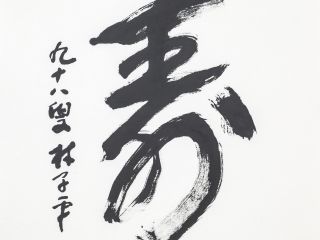 寿
九十八叟 林子平